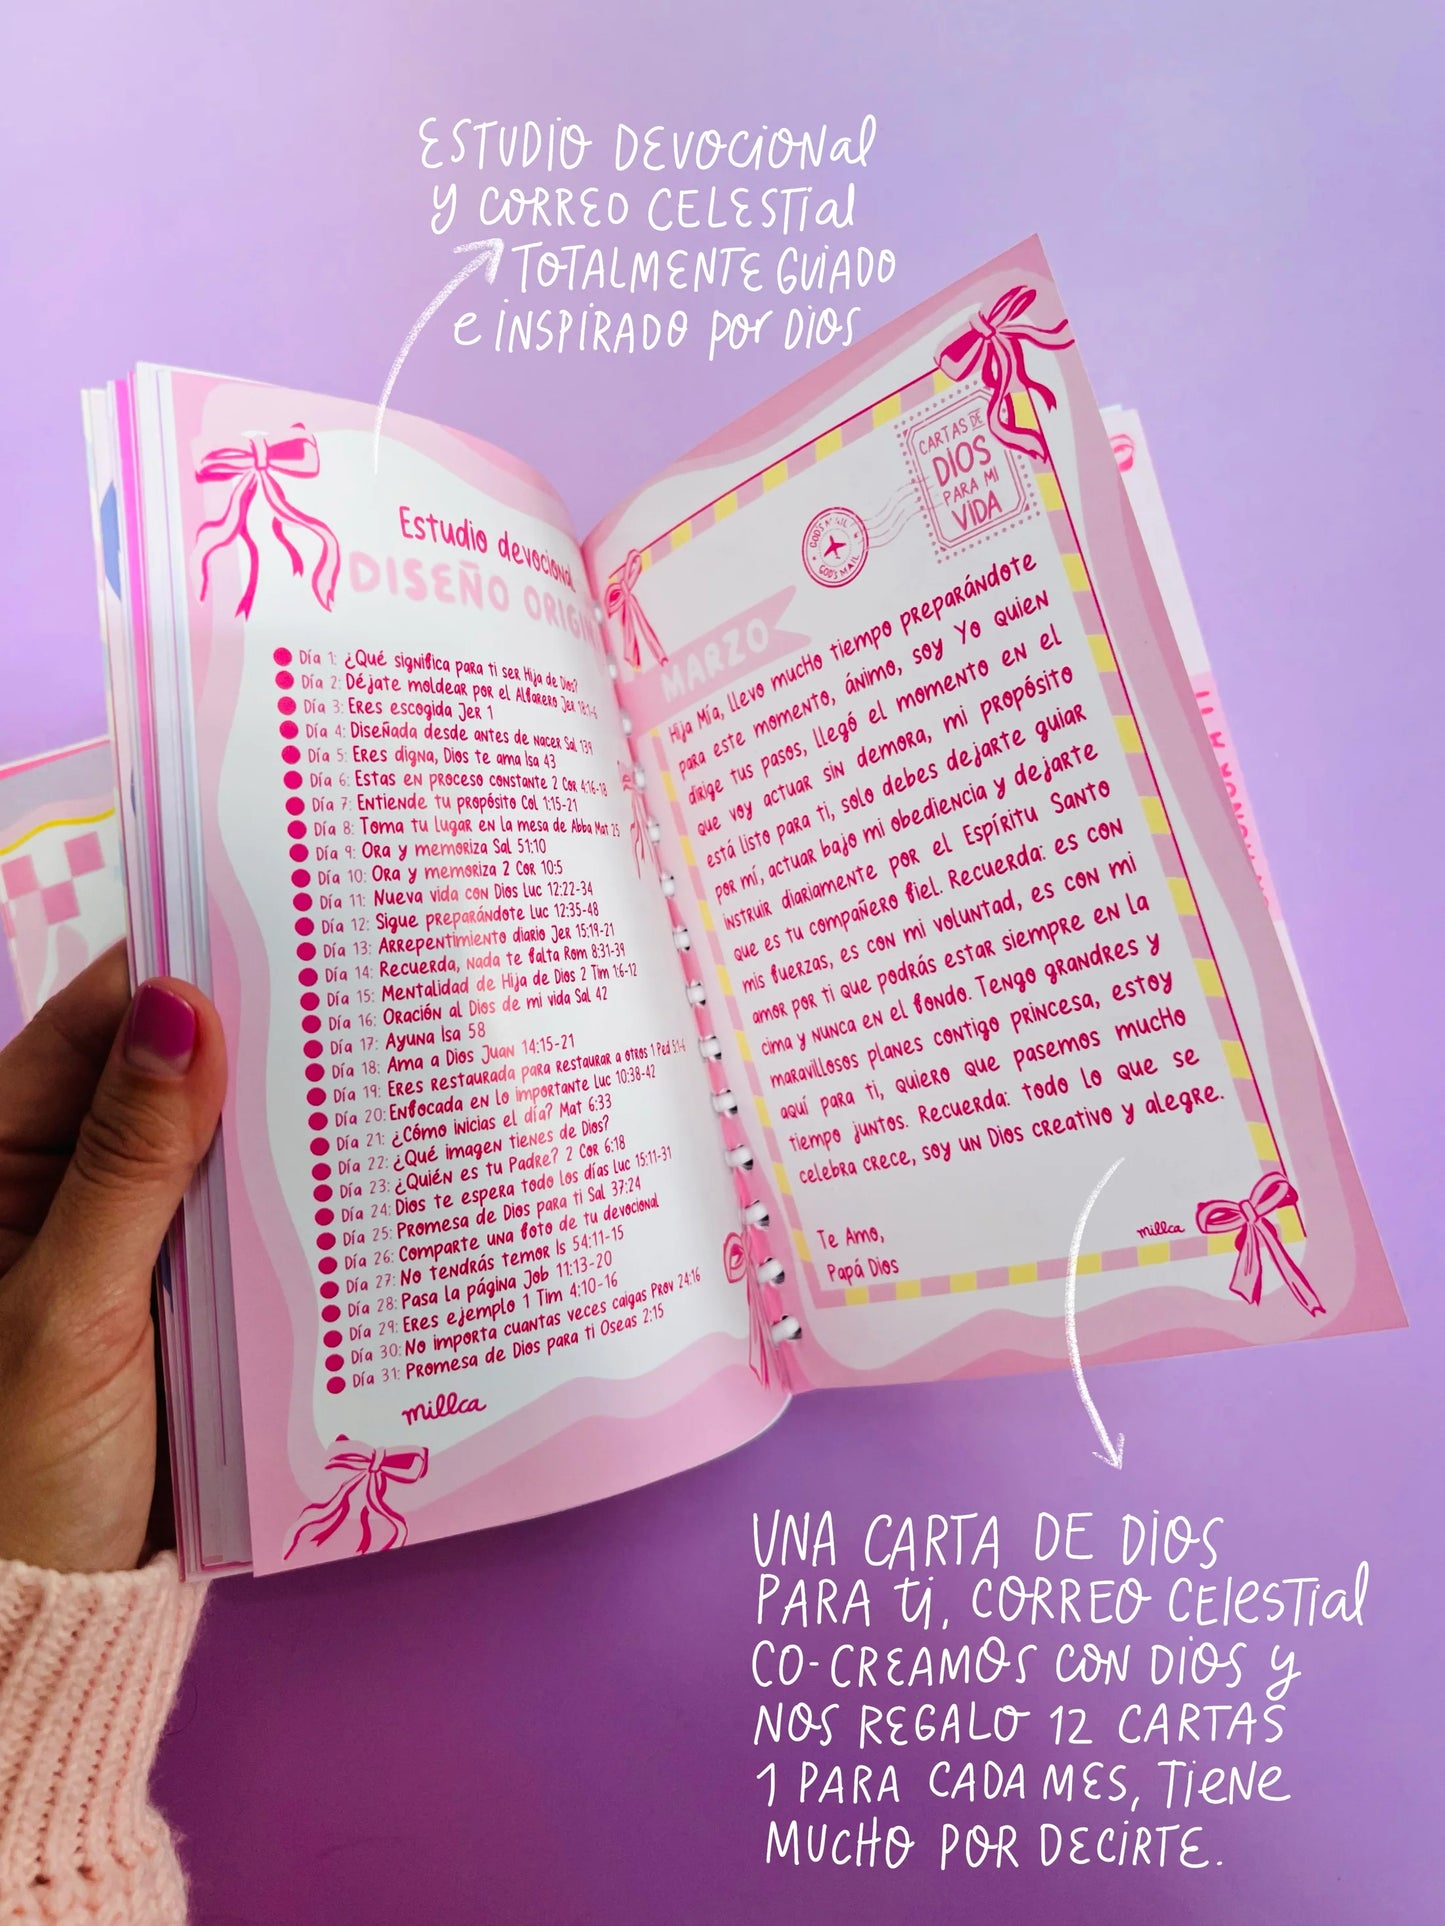 ESTUDIO DEVOCIONAL
Y CORREO CELESTIAL
TOTALMENTE GUIADO
e INSPIRADO POR DIOS
Estudio devocional
DISEÑO
Día 1: ¿Qué significa para ti ser Hija de Dios?
Día 2: Déjate moldear por el Alfarero Jer 18:1-6
Día 3: Eres escogida Jer 1
Día 4: Diseñada desde antes de nacer Sal 139
Día 5: Eres digna, Dios te ama Isa 43
Día 6: Estas en proceso constante 2 Cor 4:16-18
Día 7: Entiende tu propósito Col 1:15-21
Día 8: Toma tu lugar en la mesa de Abba Mat 25
Día 9: Ora y memoriza Sal 51:10
Día 10: Ora y memoriza 2 Cor 10:5
Día 11: Nueva vida con Dios Luc 12:22-34
Día 12: Sigue preparándote Luc 12:35-48
Día 13: Arrepentimiento diario Jer 15:19-21
Día 14: Recuerda, nada te falta Rom 8:31-39
Día 15: Mentalidad de Hija de Dios 2 Tim 1:6-12
Día 16: Oración al Dios de mi vida Sal 42
Día 17: Ayuna Isa 58
Día 18: Ama a Dios Juan 14:15-21
Día 19: Eres restaurada para restaurar a otros 1 Ped 5:1-6
Día 20: Enfocada en lo importante Luc 10:38-42
Día 21: ¿Cómo inicias el día? Mat 6:33
Día 22: ¿Qué imagen tienes de Dios?
Día 23: ¿Quién es tu Padre? 2 Cor 6:18
Día 24: Dios te espera todo los días Luc 15:11-31
Día 25: Promesa de Dios para ti Sal 37:24
Día 26: Comparte una foto de tu devocional
Día 27: No tendrás temor Is 54:11-15
Día 28: Pasa la página Job 11:13-20
Día 29: Eres ejemplo 1 Tim 4:10-16
Día 30: No importa cuantas veces caigas Prov 24:16
Día 31: Promesa de Dios para ti Oseas 2:15
millca
CARTAS DE
DIOS
PARA MI
VIDA
GOD'S MAIL
GOD'S MAIL
MARZO
Hija Mía, llevo mucho tiempo preparándote
para este momento, ánimo, soy Yo quien
dirige tus pasos, llegó el momento en el
que voy actuar sin demora, mi propósito
está listo para ti, solo debes dejarte guiar
por mí, actuar bajo mi obediencia y dejarte
instruir diariamente por el Espíritu Santo
que es tu compañero fiel. Recuerda: es con
mis fuerzas, es con mi voluntad, es con mi
amor por ti que podrás estar siempre en la
cima y nunca en el fondo. Tengo grandres y
maravillosos planes contigo princesa, estoy
aquí para ti, quiero que pasemos mucho
tiempo juntos. Recuerda: todo lo que se
celebra crece, soy un Dios creativo y alegre.
Te Amo,
Papá Dios
millca
UNA CARTA DE DIOS
PARA ti, CORREO CELESTIAL
CO-CREAMOS CON DIOS Y
NOS REGALO 12 CARTAS
1 PARA CADA MES, TIENE
MUCHO POR DECIRTE.